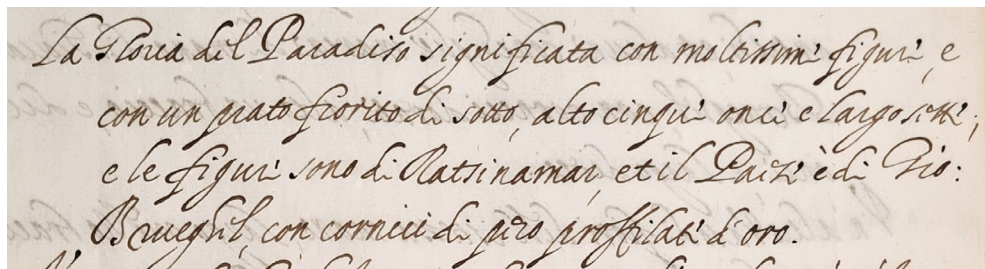 La Gloria del Paradiso significata con moltissime figure, e
con un prato fiorito di sotto, alto cinque oncie e largo sette;
e le figure sono di Ratsinamar, et il Paese è di Gio:
Brueghel, con cornici di pero proffilate d'oro.